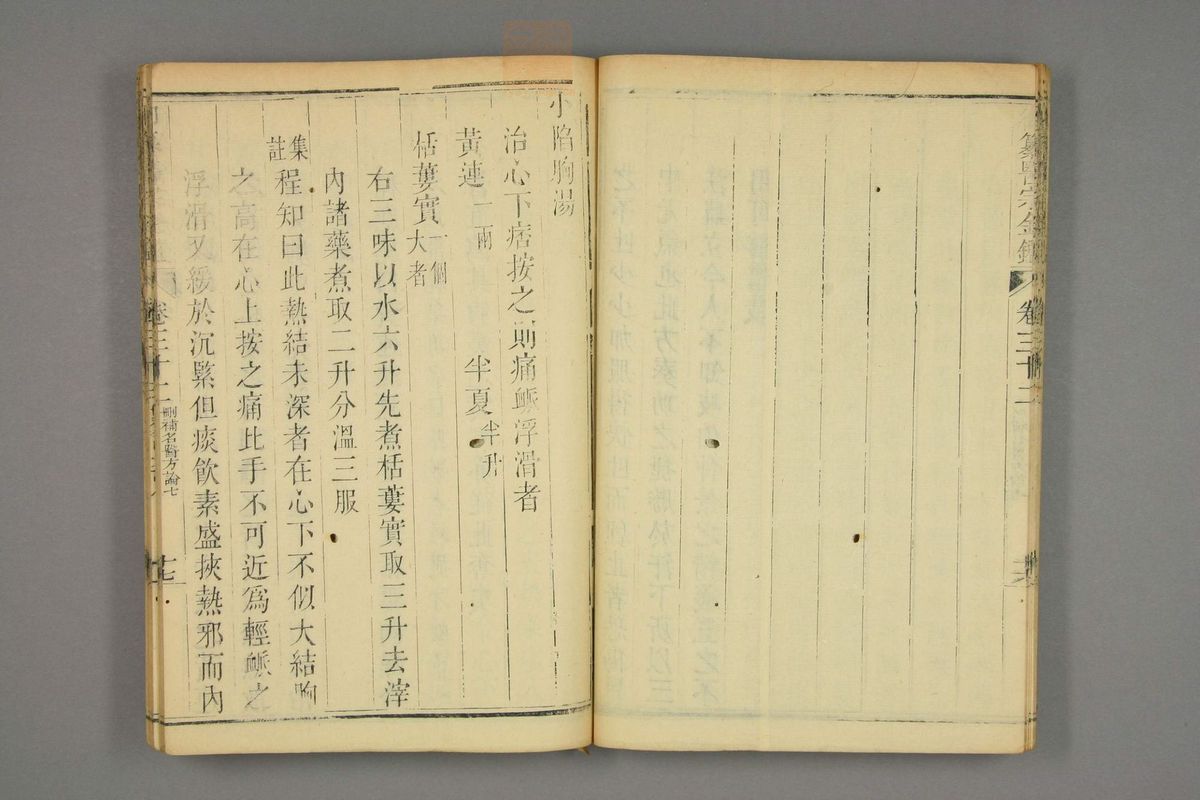 纂醫宗金鑑 卷三十二
小陷胸湯
治心下痞按之則痛脈浮滑者
黃連一兩 半夏半升
栝蔞實一個大者
右三味以水六升先煮栝蔞實取三升去滓
內諸藥煮取二升分溫三服
集註程知曰此熱結未深者在心下不似大結胸
之高在心上按之痛比手不可近爲輕脈之
浮滑又緩於沉緊但痰飲素盛挾熱邪而內
卷三十二 刪補名醫方論七 十七